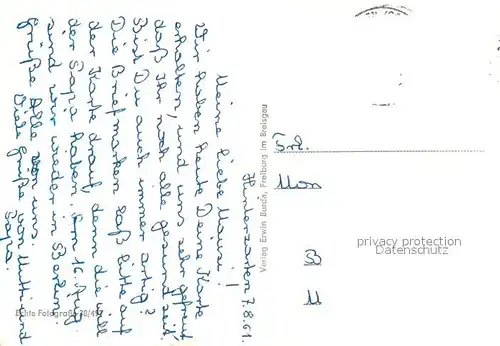 Hinterzarten 7.8.61.
Meine liebe Mausi!
Wir haben heute Deine Karte
erhalten, und uns sehr gefreut,
daß Ihr noch alle gesund seit.
Bist Du auch immer artig?
Die Briefmarken laß bitte auf
der Karte drauf, denn die will
der Papa haben. Am 16. Aug.
sind wir wieder in Berlin.
Grüße Alle von uns.
Viele Grüße von Mutti und
Papa.
Echte Fotografie
Verlag Erwin Burda, Freiburg im Breisgau
Frl.
Mon
B
M
privacy protection
Datenschutz